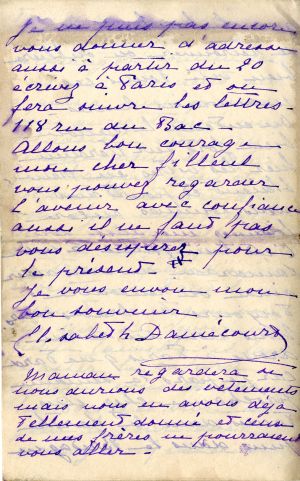 Je ne puis pas encore
vous donner d'adresse
aussi à partir du 20
écrivez à Paris et on
fera suivre les lettres-
118 rue du Bac-
Allons bon courage
mon cher filleul
vous pouvez regarder
l'avenir avec confiance
aussi il ne faut pas
vous désespérez pour
le présent-
Je vous envoie mon
bon souvenir
Elisabeth Damécourt
Maman regardera si
nous aurions des vêtements
mais nous en avons déjà
tellement donné et ceux
de mes frères ne pourraient
vous aller-